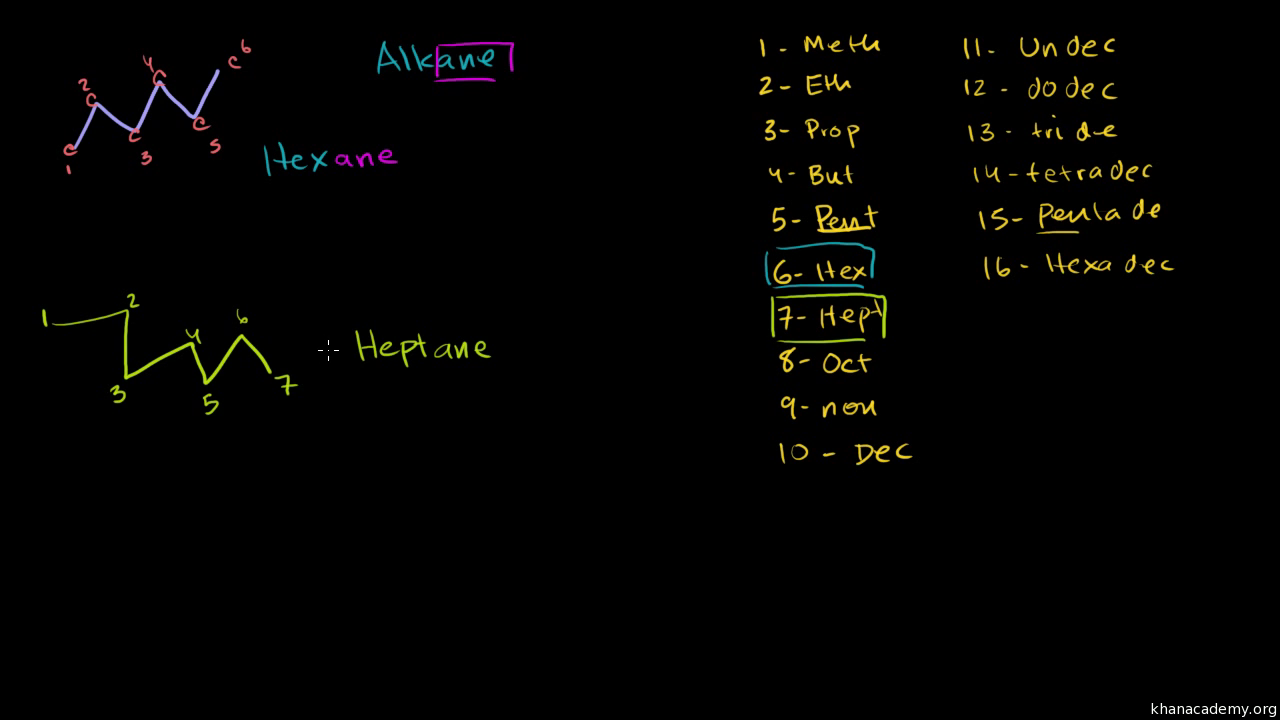 Alkane
C 1
2 C
C 3
4 C
C 5
C 6
Hexane
1
2
3
4
5
6
7
Heptane
1 - Meth
2 - Eth
3 - Prop
4 - But
5 - Pent
6 - Hex
7 - Hept
8 - Oct
9 - non
10 - Dec
11 - Undec
12 - dodec
13 - tride
14 - tetradec
15 - Pentade
16 - Hexadec
khanacademy.org